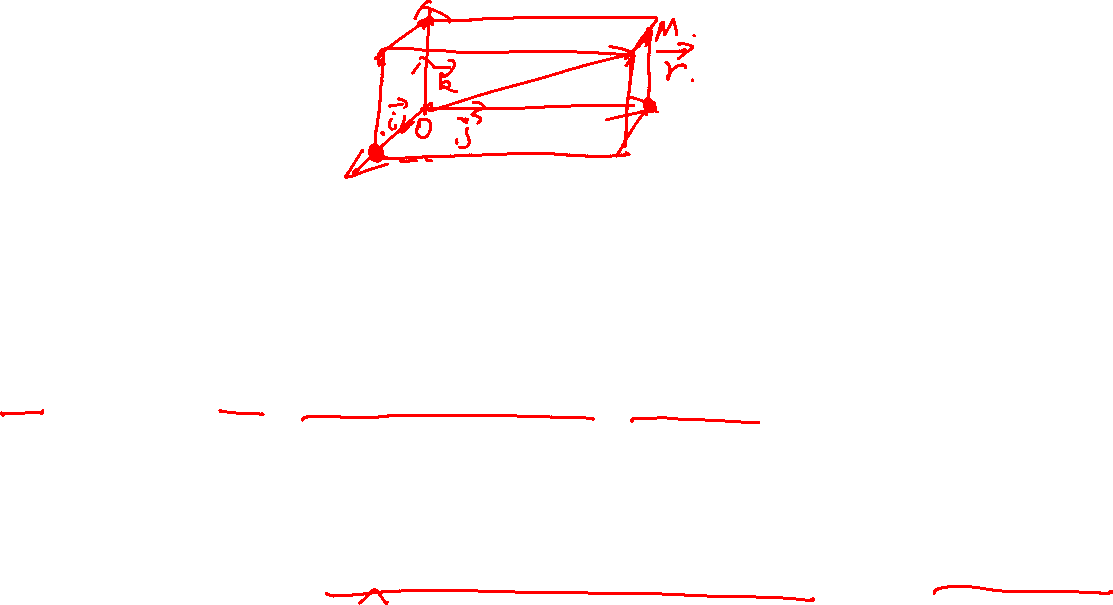 M
r⃗
k⃗
i⃗
O
j⃗